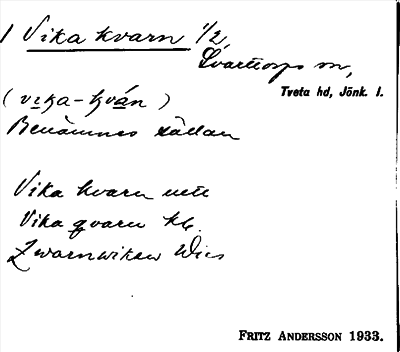 1 Vika kvarn 1/2,
Svarttorps sn,
Tveta hd, Jönk. l.
(vika-kván)
Benämnes sällan
Vika kvarn uttr
Vika qvarn kb.
Qwarnwiken Wies
FRITZ ANDERSSON 1933.